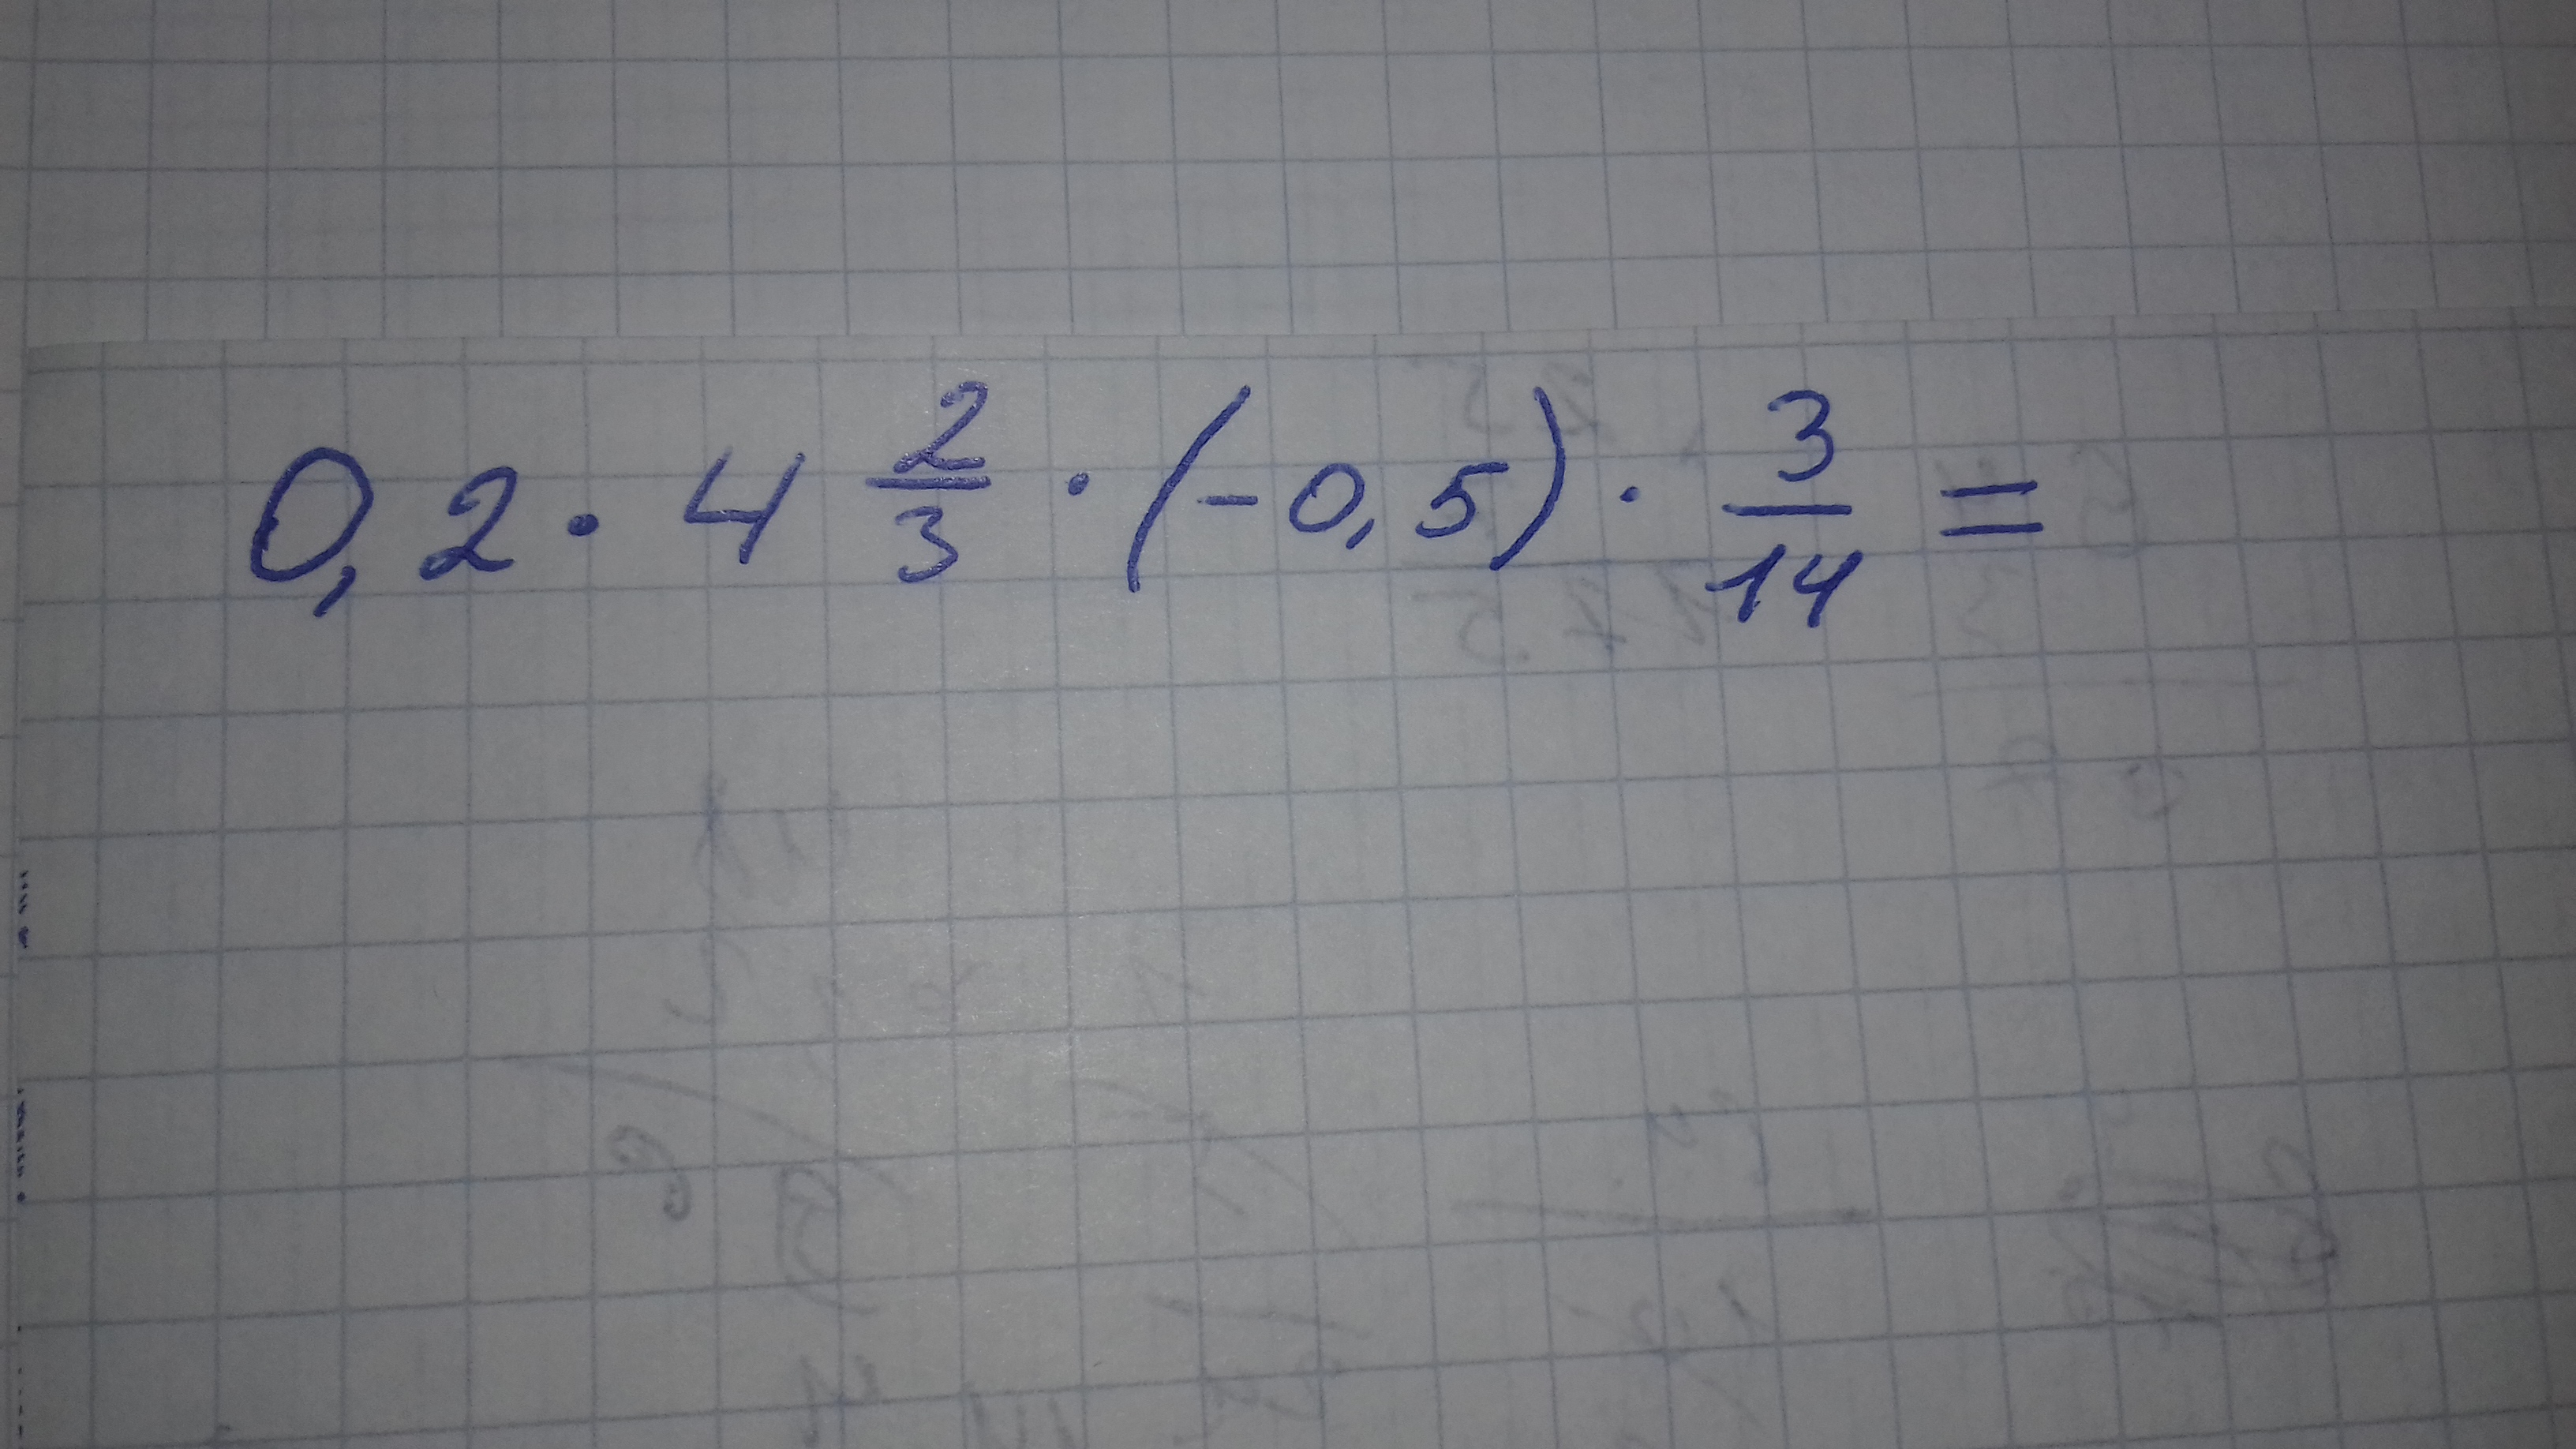 0,2 · 4 2/3 · (-0,5) · 3/14 =